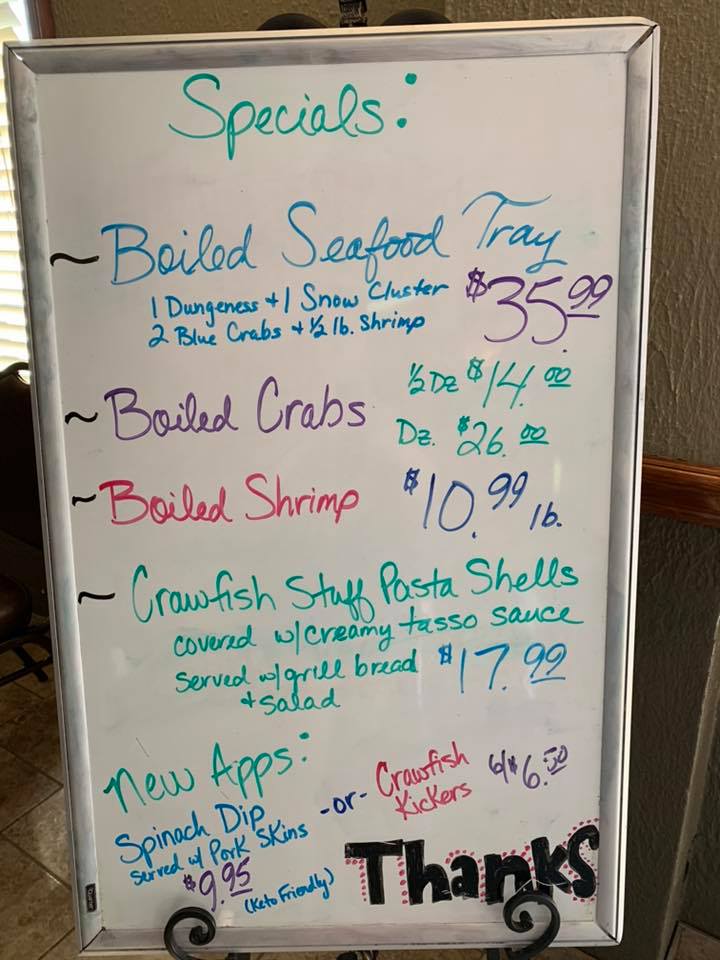 Specials:
~ Boiled Seafood Tray
1 Dungeness + 1 Snow Cluster
2 Blue Crabs + ½ lb. Shrimp
$35.99
~ Boiled Crabs
½ Dz $14.00
Dz. $26.00
~ Boiled Shrimp $10.99 lb.
~ Crawfish Stuff Pasta Shells
covered w/creamy tasso sauce
served w/grill bread
+ salad
$17.99
New Apps:
Spinach Dip
served w/ Pork Skins
$9.95
(Keto Friendly)
-or-
Crawfish
Kickers
6/$6.50
Thanks